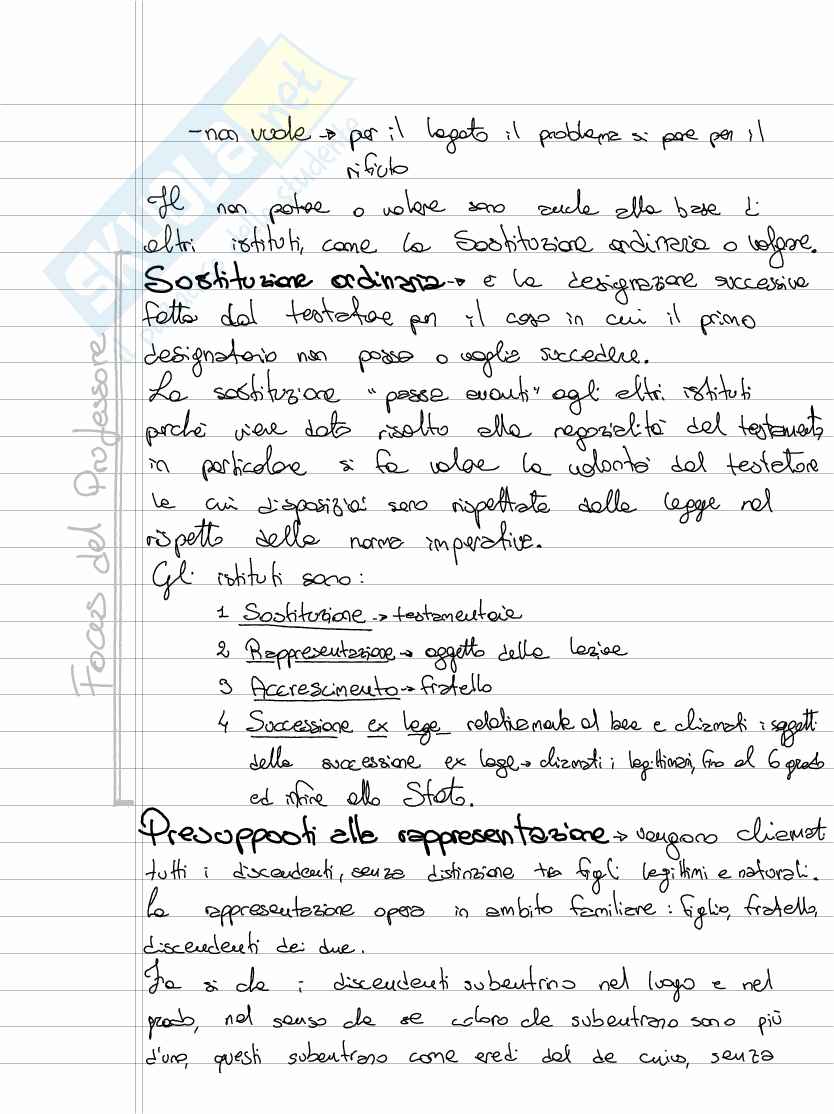 -non vuole → per il legato il problema si pone per il
rifiuto
Il non potere o volere sono anche alla base di
altri istituti, come la Sostituzione ordinaria o volgare.
Sostituzione ordinaria → è la designazione successiva
fatta dal testatore per il caso in cui il primo
designatario non possa o voglia succedere.
La sostituzione "passa avanti" agli altri istituti
perché viene dato risalto alla negozialità del testamento
in particolare si fa valere la volontà del testatore
le cui disposizioni sono rispettate dalla legge nel
rispetto delle norme imperative.
Gli istituti sono:
1 Sostituzione → testamentaria
2 Rappresentazione → oggetto della lezione
3 Accrescimento → fratello
4 Successione ex lege relativamente al bene e chiamati i soggetti
della successione ex lege → chiamati i legittimari, fino al 6 grado
ed infine allo Stato.
Focus del Professore
Presupposti alla rappresentazione → vengono chiamati
tutti i discendenti, senza distinzione tra figli legittimi e naturali.
La rappresentazione opera in ambito familiare: figlio, fratello,
discendenti dei due.
Fa si che i discendenti subentrino nel luogo e nel
grado, nel senso che se coloro che subentrano sono più
d'uno, questi subentrano come eredi del de cuius, senza
SKUOLA.net